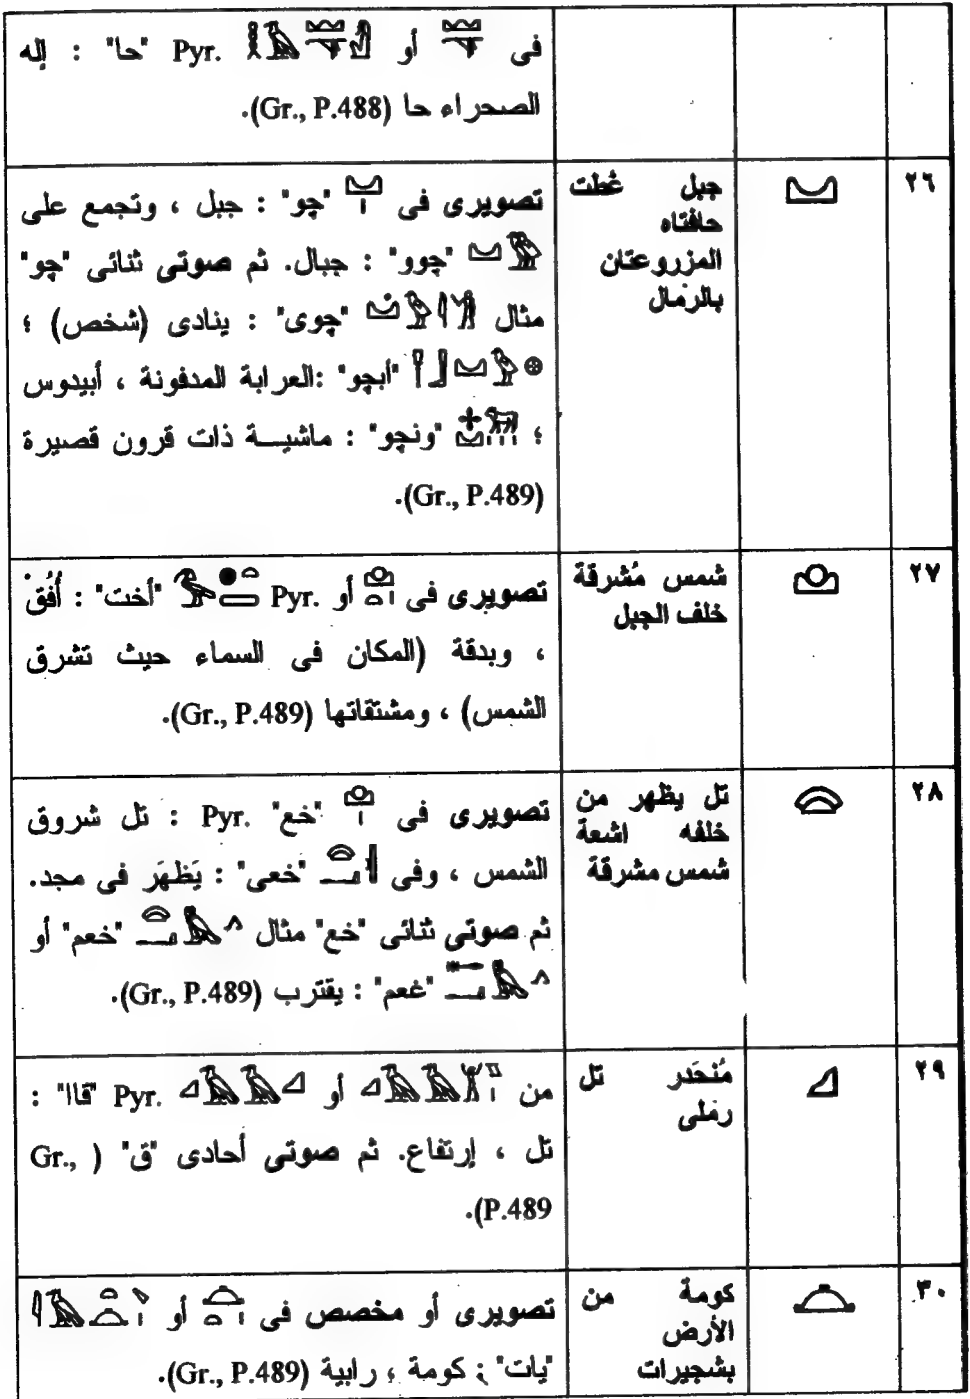 فى 𓈋 أو 𓎛𓄿𓈋𓀭 Pyr. "حا" : إله
الصحراء حا (Gr., P.488).
٢٦
𓈋
جبل غُطت
حافتاه
المزروعتان
بالرمال
تصويرى فى 𓈋𓏤 "چو" : جبل ، وتجمع على
𓈋𓅱 "چوو" : جبال. ثم صوتى ثنائى "چو"
مثال "چوى" : ينادى (شخص) ؛
"أبچو" :العرابة المدفونة ، أبيدوس
؛ "ونچو" : ماشيـــة ذات قرون قصيرة
(Gr., P.489).
٢٧
𓈌
شمس مُشرقة
خلف الجبل
تصويرى فى 𓈌𓏏𓏤 أو Pyr. "أخت" : أُفُقْ
، وبدقة (المكان فى السماء حيث تشرق
الشمس) ، ومشتقاتها (Gr., P.489).
٢٨
𓈍
تل يظهر من
خلفه اشعة
شمس مشرقة
تصويرى فى "خع" Pyr. : تل شروق
الشمس ، وفى "خعى" : يَظهَر فى مجد.
ثم صوتى ثنائى "خع" مثال "خعم" أو
"غعم" : يقترب (Gr., P.489).
٢٩
𓈎
مُنحَدر تل
رملى
من أو Pyr. "قاا" :
تل ، إرتفاع. ثم صوتى أحادى "ق" (Gr.,
P.489).
٣٠
كومة من
الأرض
بشجيرات
تصويرى أو مخصص فى أو
"يات" : كومة ، رابية (Gr., P.489).